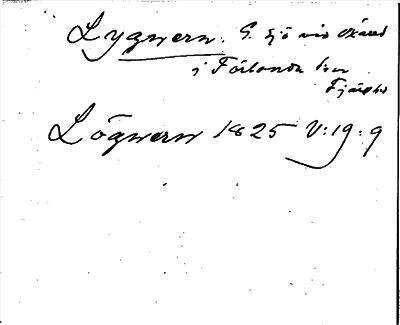 Lygnern. G. sjö vid Skåred
i Förlanda sn
Fjäre hd
Lögnern 1825 V:19:9